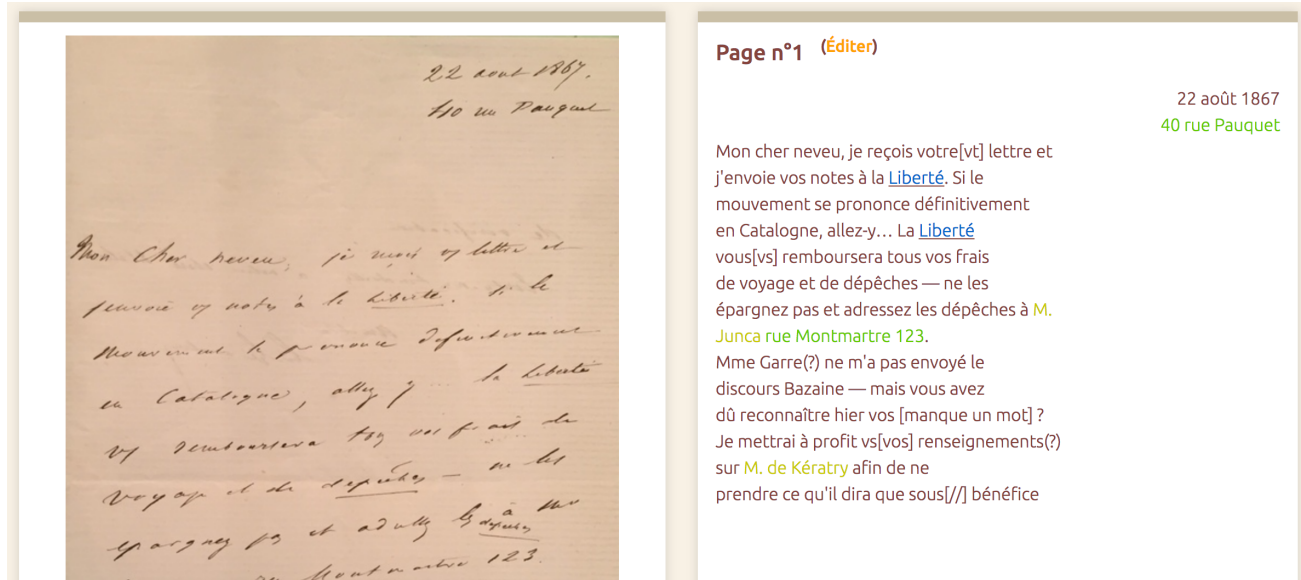 22 aout 1867.
40 rue Pauquet
Mon Cher neveu, je reçois vs lettre et
j'envoie vs notes à la Liberté. Si le
mouvement se prononce définitivement
en Catalogne, allez y ... la Liberté
vs remboursera tous vos frais de
voyage et de depêches — ne les
epargnez pas et adressez les depêches à Mr
Montmartre 123.
Page n°1 (Éditer)
22 août 1867
40 rue Pauquet
Mon cher neveu, je reçois votre[vt] lettre et
j'envoie vos notes à la Liberté. Si le
mouvement se prononce définitivement
en Catalogne, allez-y… La Liberté
vous[vs] remboursera tous vos frais
de voyage et de dépêches — ne les
épargnez pas et adressez les dépêches à M.
Junca rue Montmartre 123.
Mme Garre(?) ne m'a pas envoyé le
discours Bazaine — mais vous avez
dû reconnaître hier vos [manque un mot] ?
Je mettrai à profit vs[vos] renseignements(?)
sur M. de Kératry afin de ne
prendre ce qu'il dira que sous[//] bénéfice